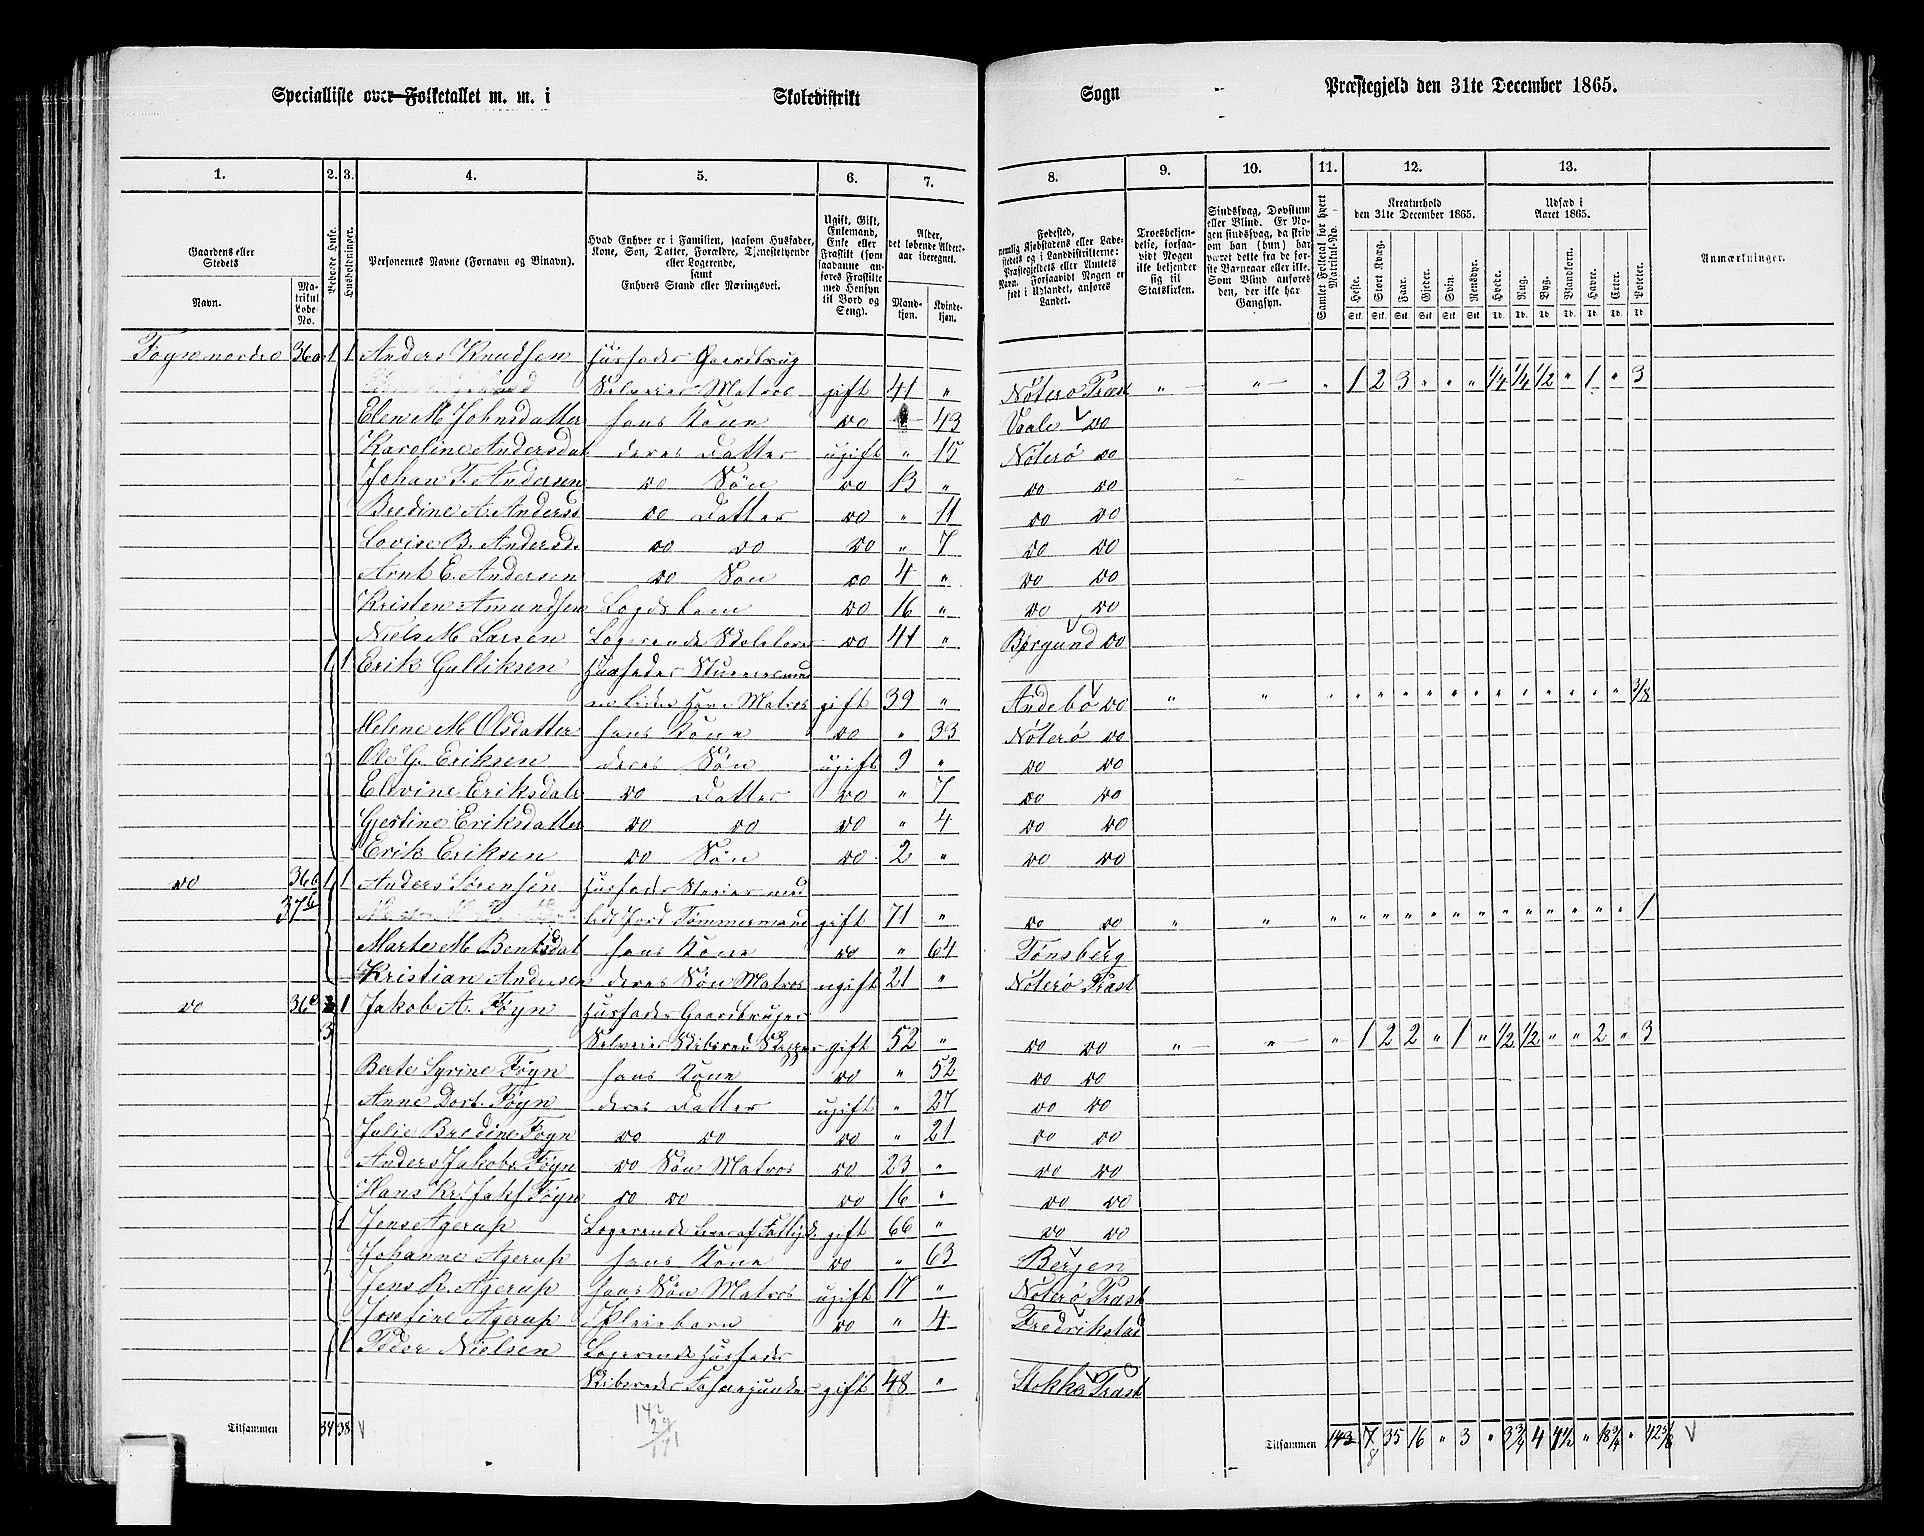 Specialliste over Folketallet m. m. i Skoledistrikt Sogn Præstegjeld den 31te December 1865.
1. 2. 3. 4. 5. 6. 7. 8. 9. 10. 11. 12. 13.
Gaardens eller Stedets
Navn. Matrikul Løbe-No.
Beboede Huse.
Husholdninger.
Personernes Navne (Fornavn og Tilnavn).
Hvad Enhver er i Familien, saasom Husfader, Kone, Søn, Datter, Forældre, Tjenestetyende eller Logerende, samt Enhvers Stand eller Næringsvei.
Ugift, Gift, Enkemand, Enke eller Fraskilt (som saadanne anføres Fraskilte med Hensyn til Bord og Seng).
Alder, det løbende Alders-aar iberegnet.
Mand-kjøn. Kvinde-kjøn.
Fødested,
Troesbekjendelse, forsaavidt Nogen ikke bekjender sig til Statskirken.
Sindssvag, Døvstum eller Blind.
Samlet Folketal for hvert Matrikul-No.
Kreaturhold den 31te December 1865.
Udsæd i Aaret 1865.
Anmærkninger.
Heste. Stort Kvæg. Faar. Gjeder. Svin. Rensdyr. Hvede. Rug. Byg. Blandkorn. Havre. Erter. Poteter.
Føyn nordre 36a 1 1 Anders Knudsen Husfader Gaardbrug
Selveier Matros gift 41 " Nøterø Præst " " " 1 2 3 " " " 1/4 1/4 1/2 " 1 " 3
Elen M. Johnsdatter hans Kone do 43 Vaale do
Karoline Andersdat. deres Datter ugift " 15 Nøterø do
Johan F. Andersen do Søn do 13 " do do
Bredine A. Andersd do Datter do " 11 do do
Lovise B. Andersd. do do do " 7 do do
Arnt E. Andersen do Søn do 4 " do do
Kristen Amundsen Lægdslem do 16 " do do
Niels M. Larsen Logerende Skolelærer do 41 " Borgund do
1 1 Erik Gulliksen Husfader
Matros gift 39 " Andebo do " " " " " " " " " " " " " " " 3/8
Helene M. Olsdatter hans Kone do " 33 Nøterø do
Ole G. Eriksen deres Søn ugift 9 " do do
Elevine Eriksdatr do Datter do " 7 do do
Gjestine Eriksdatter do do do " 4 do do
Erik Eriksen do Søn do 2 " do do
do 36b 1 1 Anders Sørensen Husfader Selveier med
37b lidt Jord Tømmermand gift 71 " do do " " " " " " " " " " " " " " " 1
Marte M. Bentsdat hans Kone do " 64 Tønsberg
Kristian Andersen deres Søn Matros ugift 21 " Nøterø Præst
do 36c 1 Jakob A. Føyn Husfader Gaardbruger
3 Selveier Skibsred. Skipper gift 52 " do do " " " 1 2 2 " 1 " 1/2 1/2 " " 2 " 3
Berte Syrine Føyn hans Kone do " 52 do do
Anne Dort. Føyn deres Datter ugift " 27 do do
Julie Bredine Føyn do do do " 21 do do
Anders Jakobs. Føyn do Søn Matros do 23 " do do
Hans Kr. Jak. Føyn do do do 16 " do do
1 Jens Agerup Logerende Lever af Fattigk. gift 66 " do do
Johanne Agerup hans Kone do " 63 Bergen
Jens R. Agerup hans Søn Matros ugift 17 " Nøterø Præst
Josefine Agerup Pleiebarn do " 4 Fredrikstad
1 Peder Nielsen Logerende Husfader
gift 48 " Stokke Præst
Tilsammen 34 38
142
29
171
Tilsammen 143 7 35 16 " 3 " 3 3/4 4 " 18 3/4 " 42 5/8
8